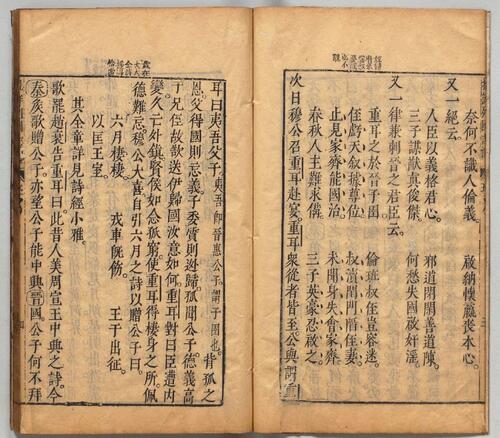 奈何不識人倫義。啟納懷嬴喪本心。
又一絕云。
人臣以義格君心。邪道閉閑善道陳。
三子講猷真俊傑。何愁失國啟奸淫。
又一律兼刺晉之君臣云。
重耳之於晉子圉 倫班叔侄豈容迷。
侄虧天叙據尊位 叔瀆閨門侄妻。
止見家齊能國治。未聞身失會家齊。
春秋人主難求備。三子英豪忍啟之。
次日穆公召重耳赴宴重耳眾從者皆至公與謂重
耳曰夷吾父子 夷吾即晉惠公子謂子圉也 背孤之
恩父得國則忘義子委質則逃歸孤聞公子德義高
于兄侄故欲送伊歸國汝意如何重耳對曰臣遭内
變久亡外鎮賢侯如念孤窮使重耳得棲身之所佩
德難忘穆公大喜自引六月之詩以贈公子曰
六月棲棲 戎車既飭 王于出征。
以匡王室
其全章詳見詩經小雅。
歌罷趙衰告重耳曰此昔人美周宣王中興之詩今
秦矦歌贈公子亦望公子能中興晉國公子何不拜